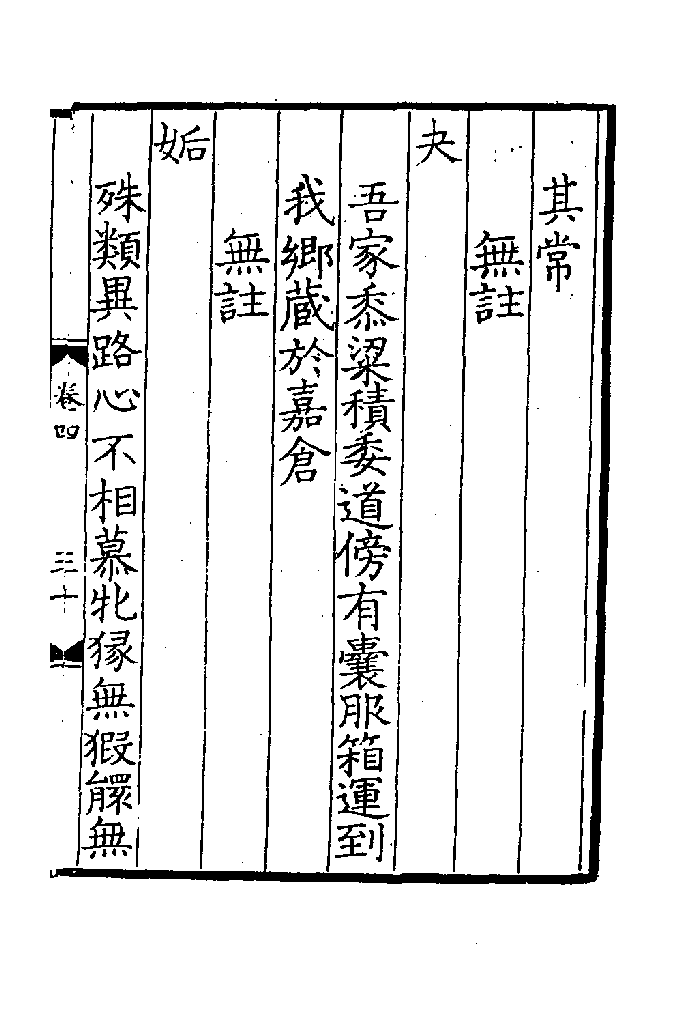 其常
無註
夬
吾家黍粱積委道傍有囊服箱運到
我鄉藏於嘉倉
無註
姤
殊類異路心不相慕牝猳無猳鰥無
卷四
三十